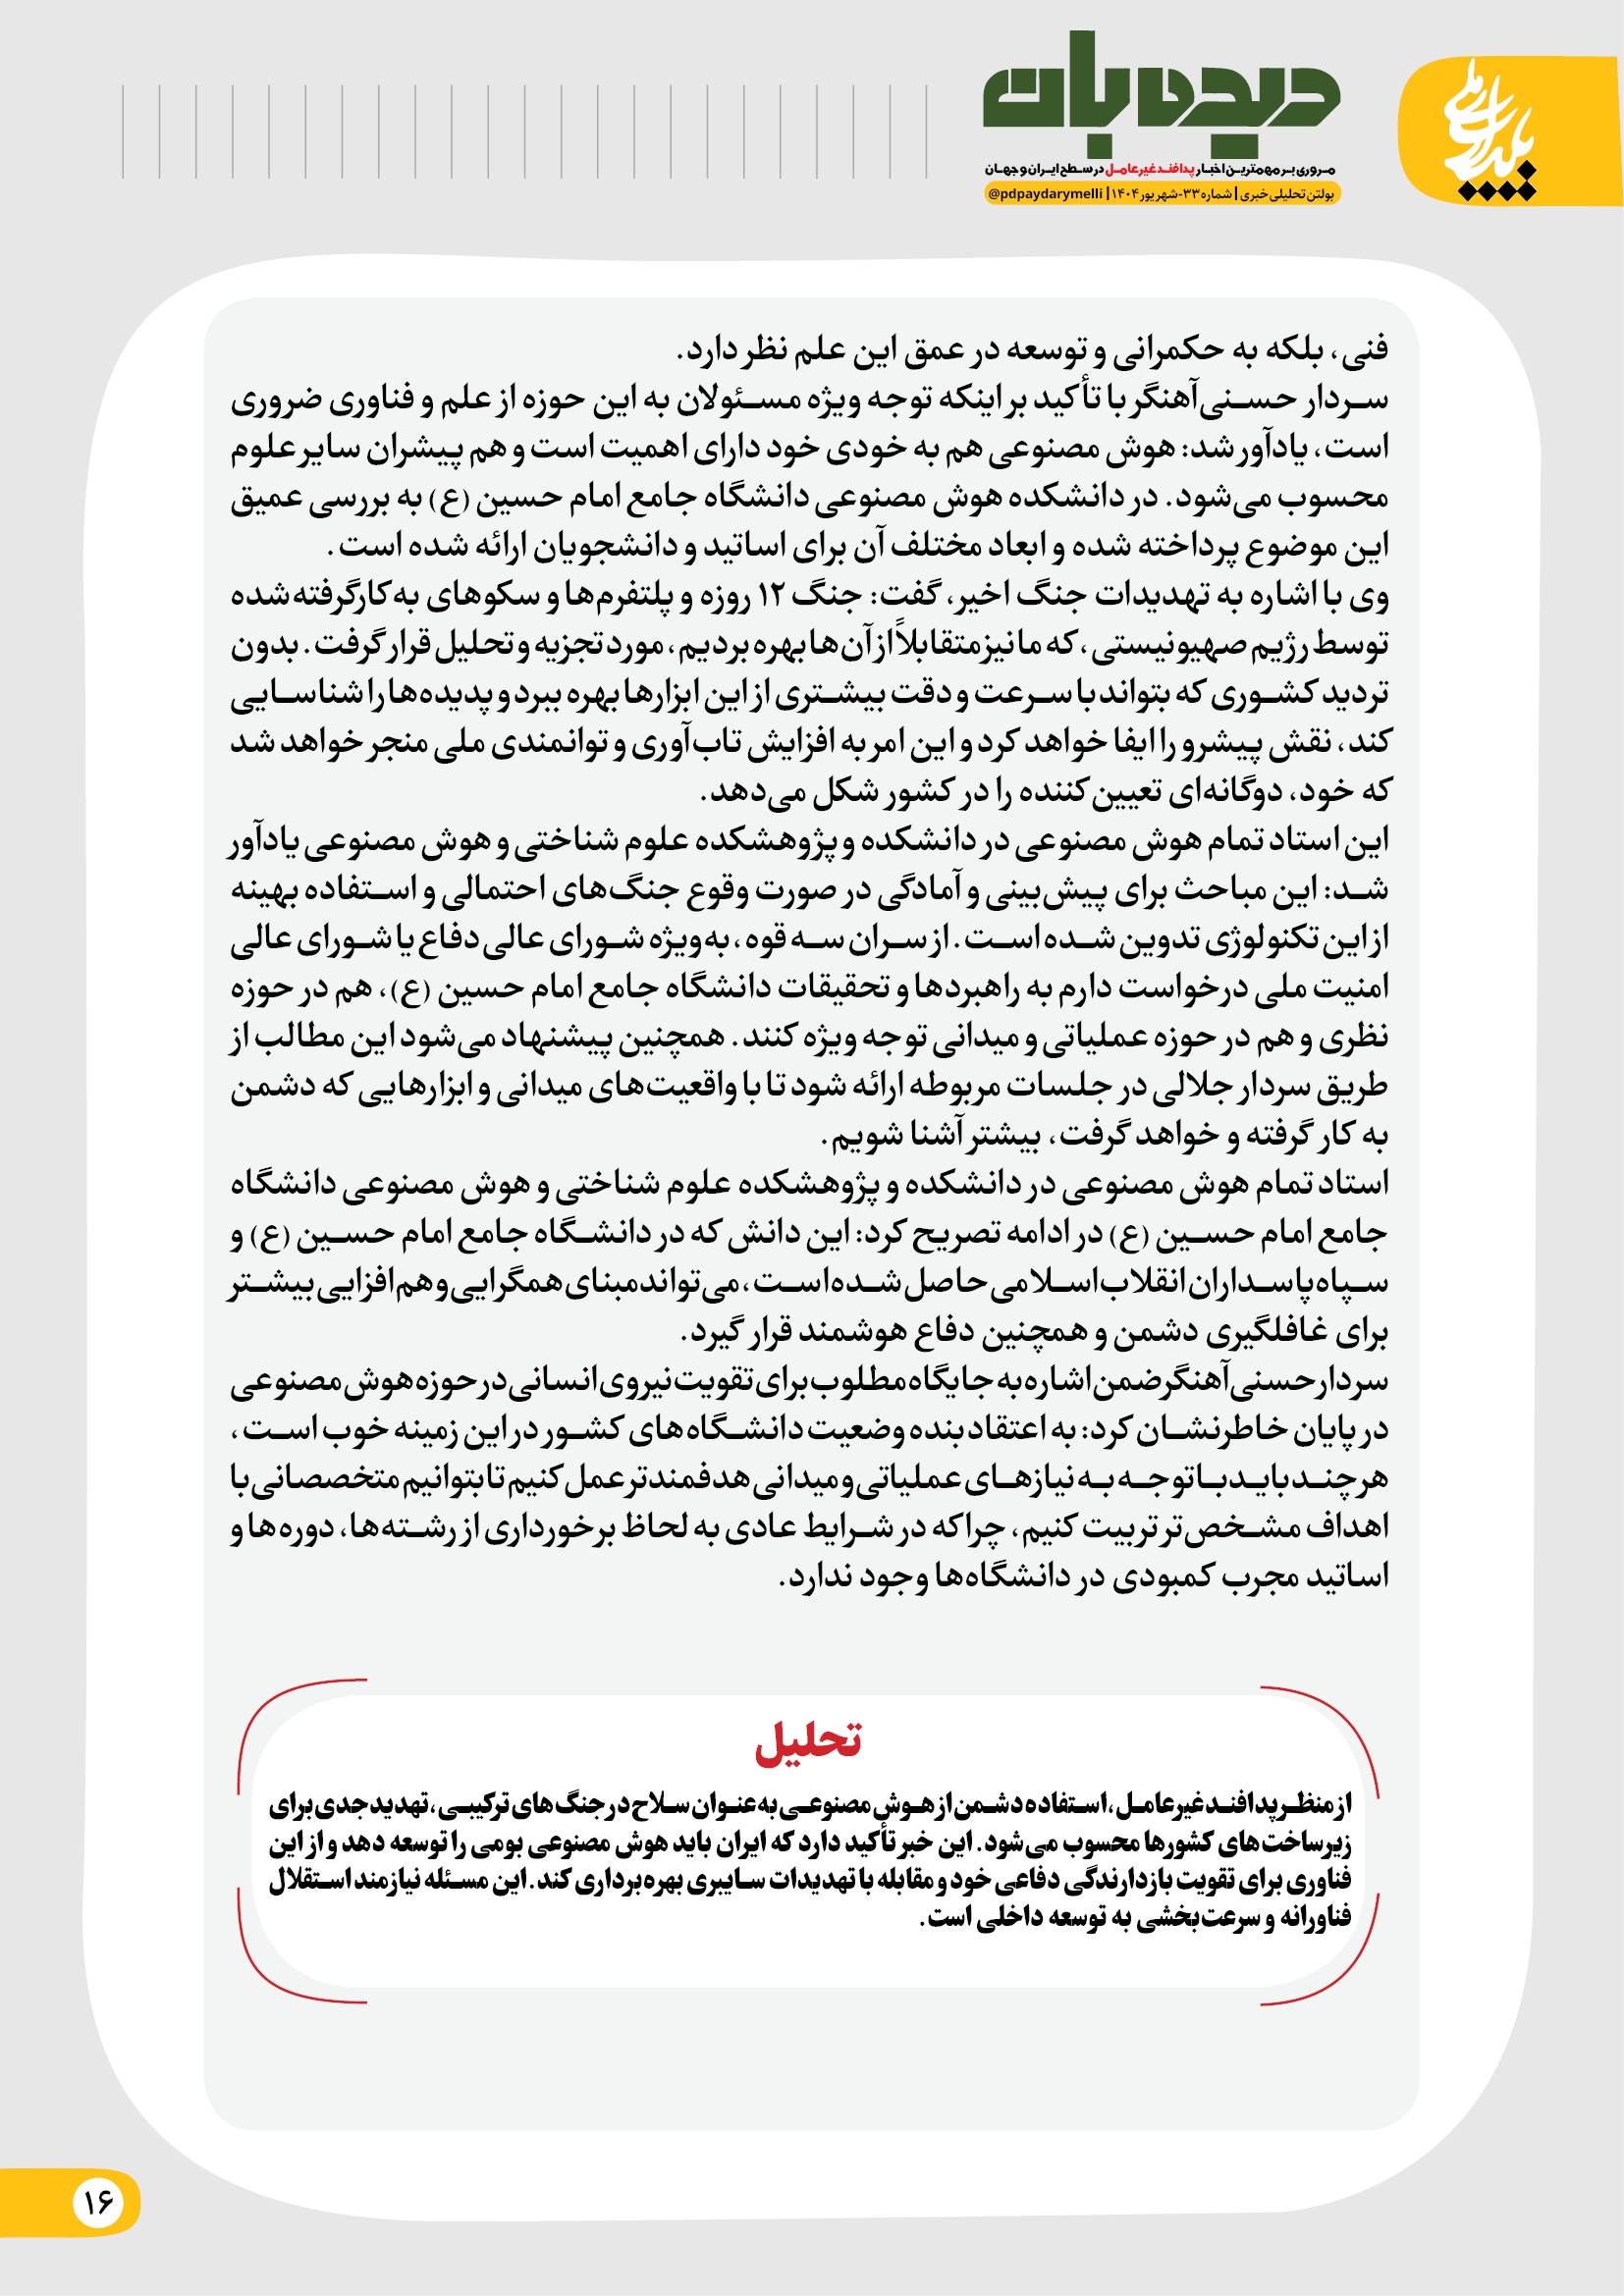 پایداری ملی
دیده‌بان
مروری بر مهمترین اخبار پدافند غیرعامل در سطح ایران و جهان
بولتن تحلیلی خبری | شماره ۳۳-شهریور ۱۴۰۴ | @pdpaydarymelli
فنی، بلکه به حکمرانی و توسعه در عمق این علم نظر دارد.
سردار حسنی‌آهنگر با تأکید بر اینکه توجه ویژه مسئولان به این حوزه از علم و فناوری ضروری
است، یادآور شد: هوش مصنوعی هم به خودی خود دارای اهمیت است و هم پیشران سایر علوم
محسوب می‌شود. در دانشکده هوش مصنوعی دانشگاه جامع امام حسین (ع) به بررسی عمیق
این موضوع پرداخته شده و ابعاد مختلف آن برای اساتید و دانشجویان ارائه شده است.
وی با اشاره به تهدیدات جنگ اخیر، گفت: جنگ ۱۲ روزه و پلتفرم‌ها و سکوهای به‌کارگرفته‌شده
توسط رژیم صهیونیستی، که ما نیز متقابلاً از آن‌ها بهره بردیم، مورد تجزیه و تحلیل قرار گرفت. بدون
تردید کشوری که بتواند با سرعت و دقت بیشتری از این ابزارها بهره ببرد و پدیده‌ها را شناسایی
کند، نقش پیشرو را ایفا خواهد کرد و این امر به افزایش تاب‌آوری و توانمندی ملی منجر خواهد شد
که خود، دوگانه‌ای تعیین‌کننده را در کشور شکل می‌دهد.
این استاد تمام هوش مصنوعی در دانشکده و پژوهشکده علوم شناختی و هوش مصنوعی یادآور
شد: این مباحث برای پیش‌بینی و آمادگی در صورت وقوع جنگ‌های احتمالی و استفاده بهینه
از این تکنولوژی تدوین شده است. از سران سه قوه، به‌ویژه شورای عالی دفاع یا شورای عالی
امنیت ملی درخواست دارم به راهبردها و تحقیقات دانشگاه جامع امام حسین (ع)، هم در حوزه
نظری و هم در حوزه عملیاتی و میدانی توجه ویژه کنند. همچنین پیشنهاد می‌شود این مطالب از
طریق سردار جلالی در جلسات مربوطه ارائه شود تا با واقعیت‌های میدانی و ابزارهایی که دشمن
به کار گرفته و خواهد گرفت، بیشتر آشنا شویم.
استاد تمام هوش مصنوعی در دانشکده و پژوهشکده علوم شناختی و هوش مصنوعی دانشگاه
جامع امام حسین (ع) در ادامه تصریح کرد: این دانش که در دانشگاه جامع امام حسین (ع) و
سپاه پاسداران انقلاب اسلامی حاصل شده است، می‌تواند مبنای همگرایی و هم‌افزایی بیشتر
برای غافلگیری دشمن و همچنین دفاع هوشمند قرار گیرد.
سردار حسنی‌آهنگر ضمن اشاره به جایگاه مطلوب برای تقویت نیروی انسانی در حوزه هوش مصنوعی
در پایان خاطرنشان کرد: به اعتقاد بنده وضعیت دانشگاه‌های کشور در این زمینه خوب است،
هرچند باید با توجه به نیازهای عملیاتی و میدانی هدفمندتر عمل کنیم تا بتوانیم متخصصانی با
اهداف مشخص‌تر تربیت کنیم، چراکه در شرایط عادی به لحاظ برخورداری از رشته‌ها، دوره‌ها و
اساتید مجرب کمبودی در دانشگاه‌ها وجود ندارد.
تحلیل
از منظر پدافند غیرعامل، استفاده دشمن از هوش مصنوعی به‌عنوان سلاح در جنگ‌های ترکیبی، تهدید جدی برای
زیرساخت‌های کشورها محسوب می‌شود. این خبر تأکید دارد که ایران باید هوش مصنوعی بومی را توسعه دهد و از این
فناوری برای تقویت بازدارندگی دفاعی خود و مقابله با تهدیدات سایبری بهره‌برداری کند. این مسئله نیازمند استقلال
فناورانه و سرعت‌بخشی به توسعه داخلی است.
۱۶